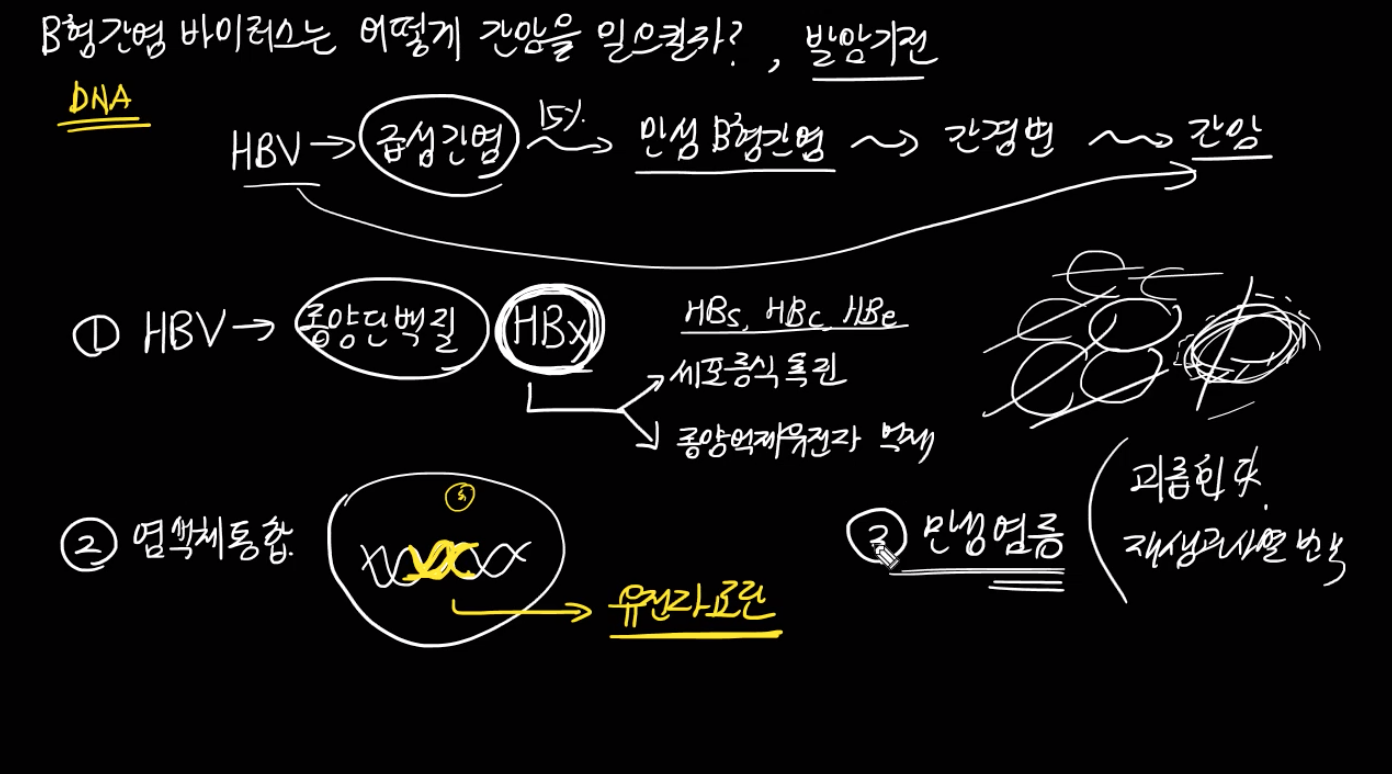 B형간염 바이러스는 어떻게 간암을 일으킬까?, 발암기전
DNA
HBV → 급성간염 15% 만성 B형간염 간경변 간암
① HBV → 종양단백질 HBx
HBs, HBc, HBe
세포증식 촉진
종양억제유전자 억제
② 염색체통합
유전자교란
③ 만성염증
괴롭힌다.
재생과사멸 반복